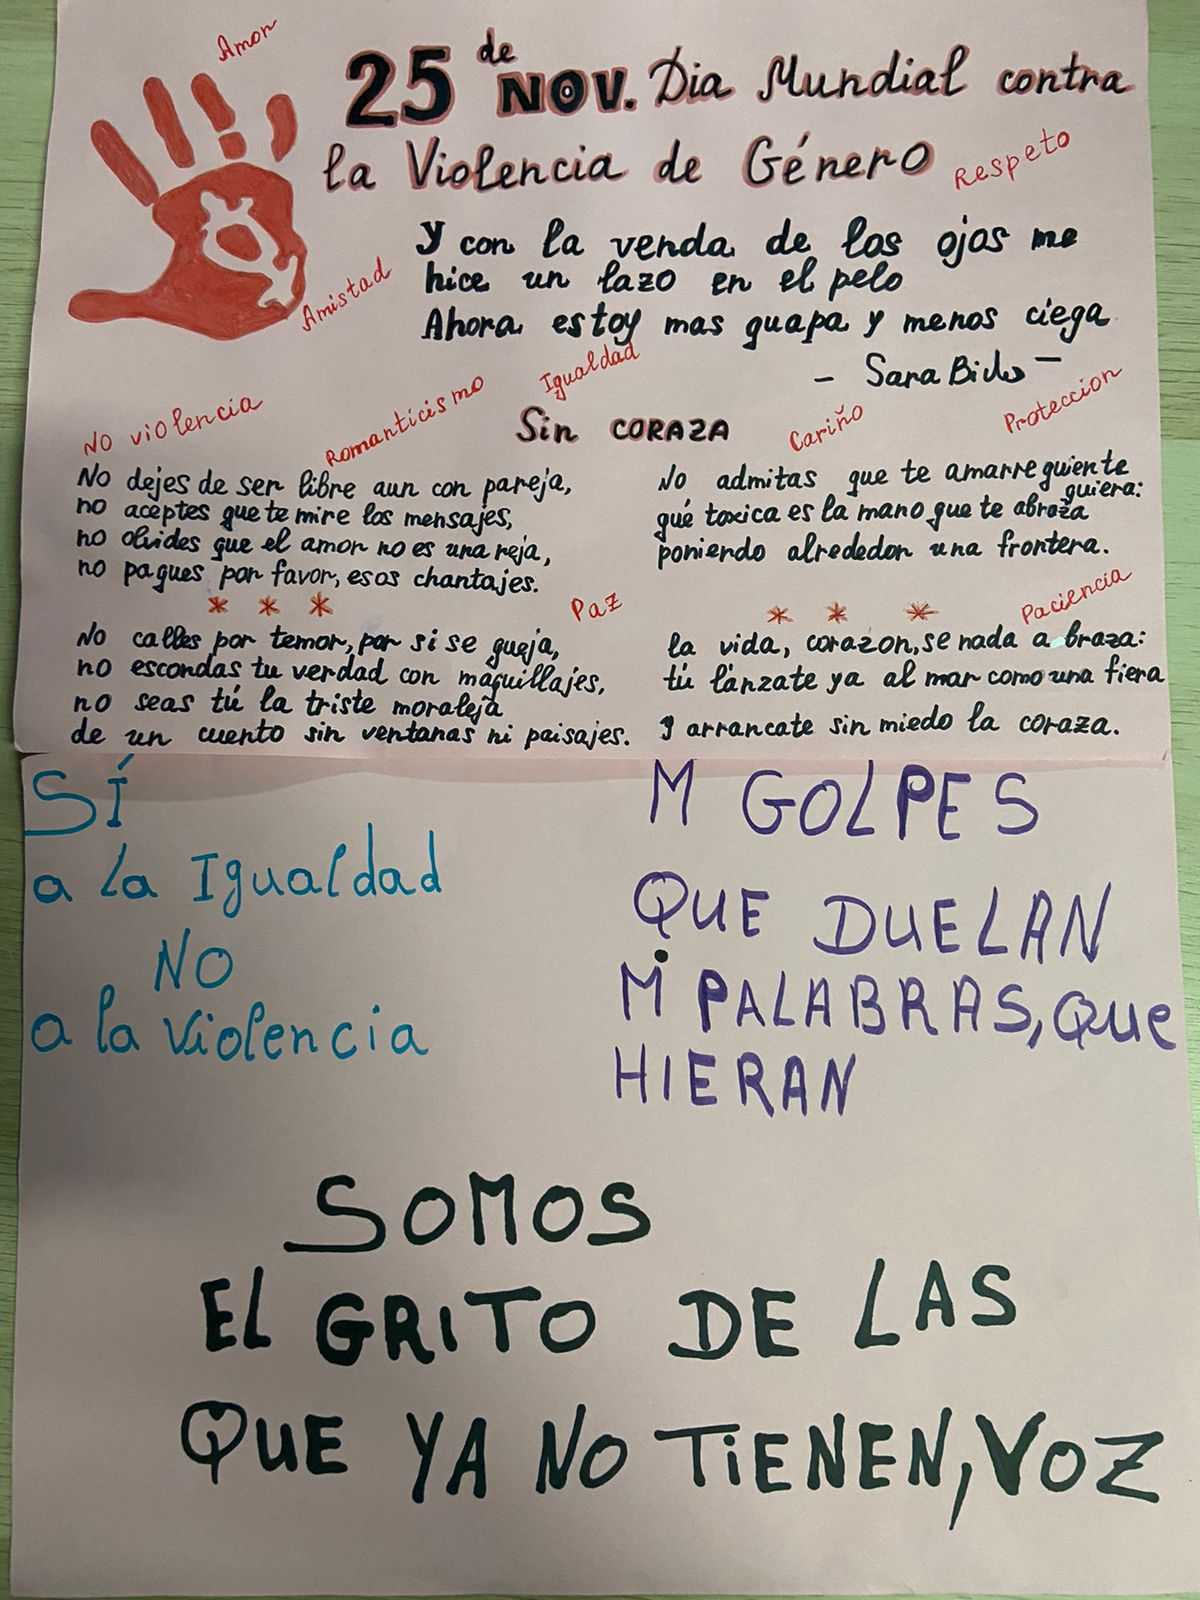 Amor
25 de NOV. Dia Mundial contra
la Violencia de Género
Respeto
Y con la venda de los ojos me
hice un lazo en el pelo
Ahora estoy mas guapa y menos ciega
Amistad
Igualdad
- Sara Búho -
No violencia
Romanticismo
Sin CORAZA
Cariño
Proteccion
No dejes de ser libre aun con pareja,
no aceptes que te mire los mensajes,
no olvides que el amor no es una reja,
no pagues por favor, esos chantajes.
* * *
Paz
No calles por temor, por si se queja,
no escondas tu verdad con maquillajes,
no seas tú la triste moraleja
de un cuento sin ventanas ni paisajes.
No admitas que te amarre quiente
quiera:
qué toxica es la mano que te abraza
poniendo alrededor una frontera.
* * *
Paciencia
la vida, corazon, se nada a braza:
tú lánzate ya al mar como una fiera
y arrancate sin miedo la coraza.
SÍ
a la Igualdad
NO
a la violencia
NI GOLPES
QUE DUELAN
NI PALABRAS, QUE
HIERAN
SOMOS
EL GRITO DE LAS
QUE YA NO TIENEN, VOZ